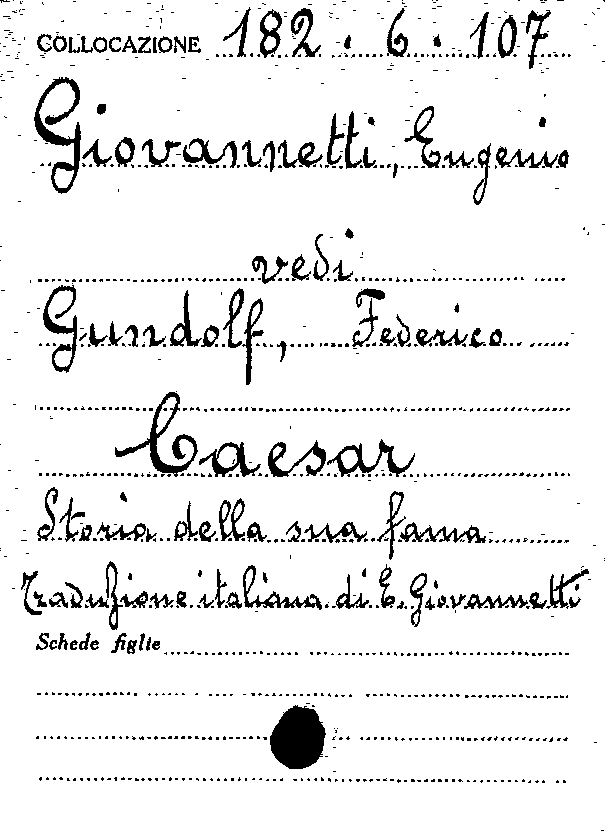 COLLOCAZIONE 182.6.107
Giovannetti, Eugenio
vedi
Gundolf, Federico
Caesar
Storia della sua fama
Traduzione italiana di E. Giovannetti
Schede figlie